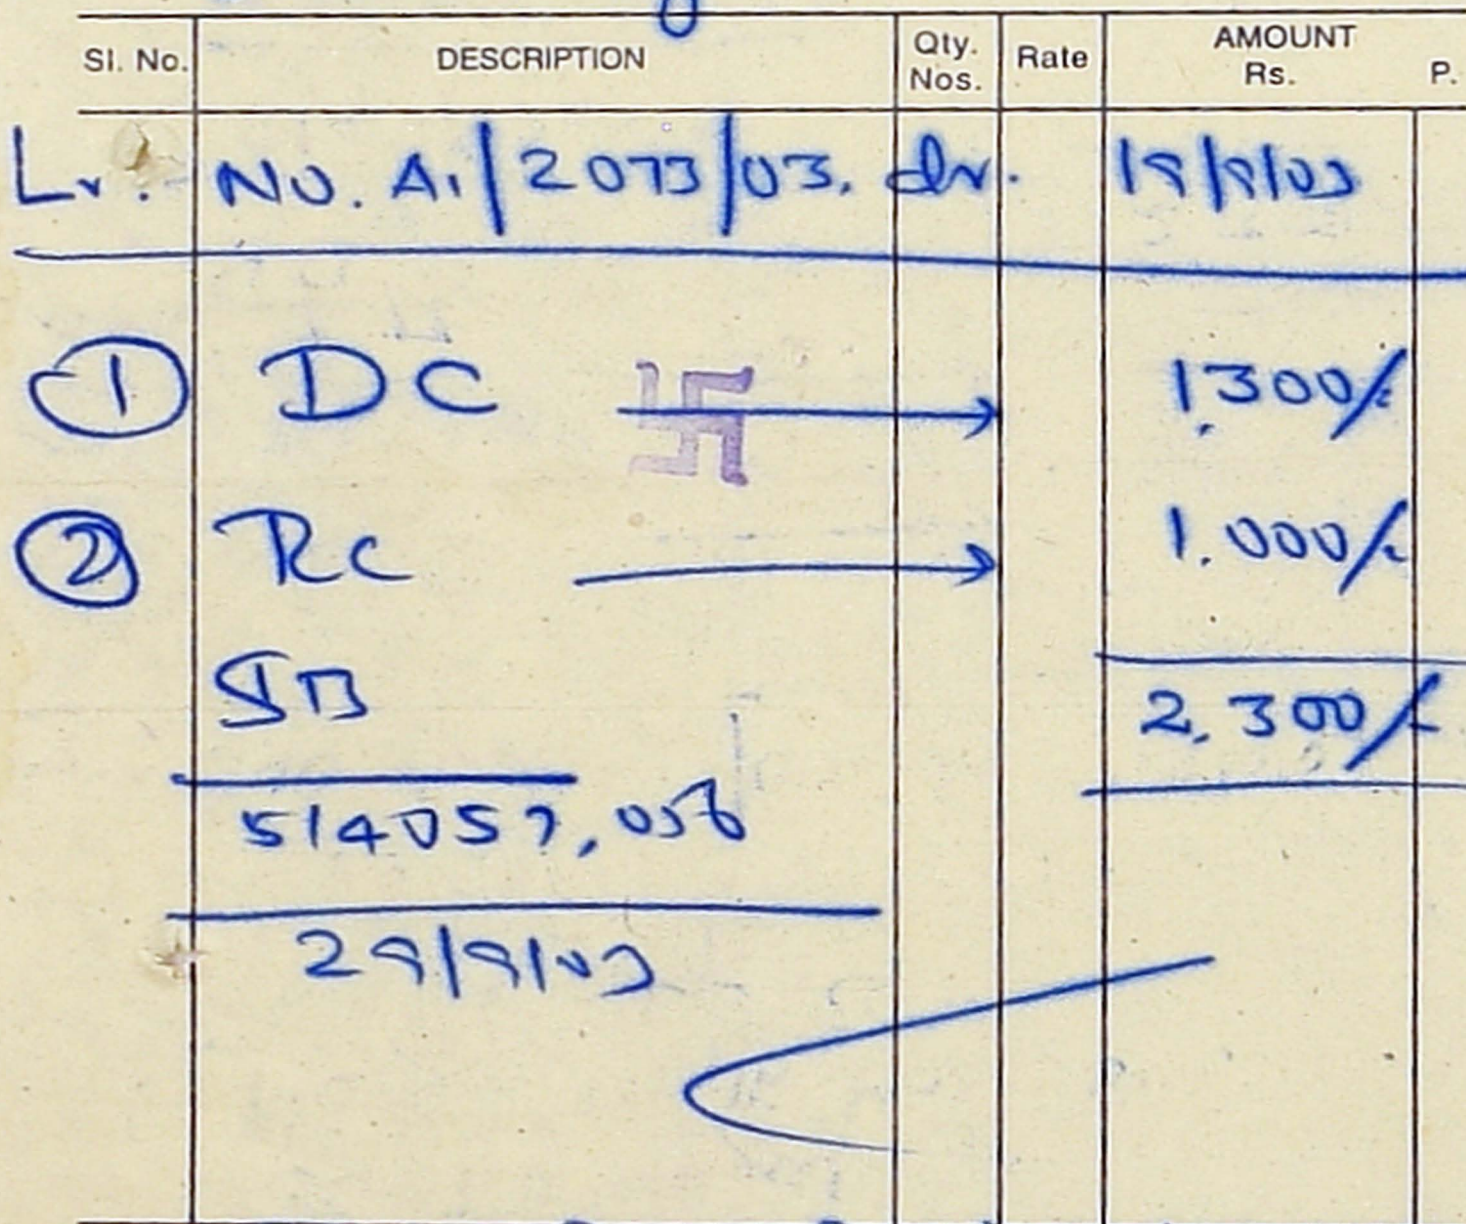 Sl. No. DESCRIPTION Qty. Nos. Rate AMOUNT Rs. P.
Lr. No. A1/2073/03. dr. 19/9/03
① DC → 1.300/-
② RC → 1.000/-
SB 2.300/-
514057, 058
29/9/03